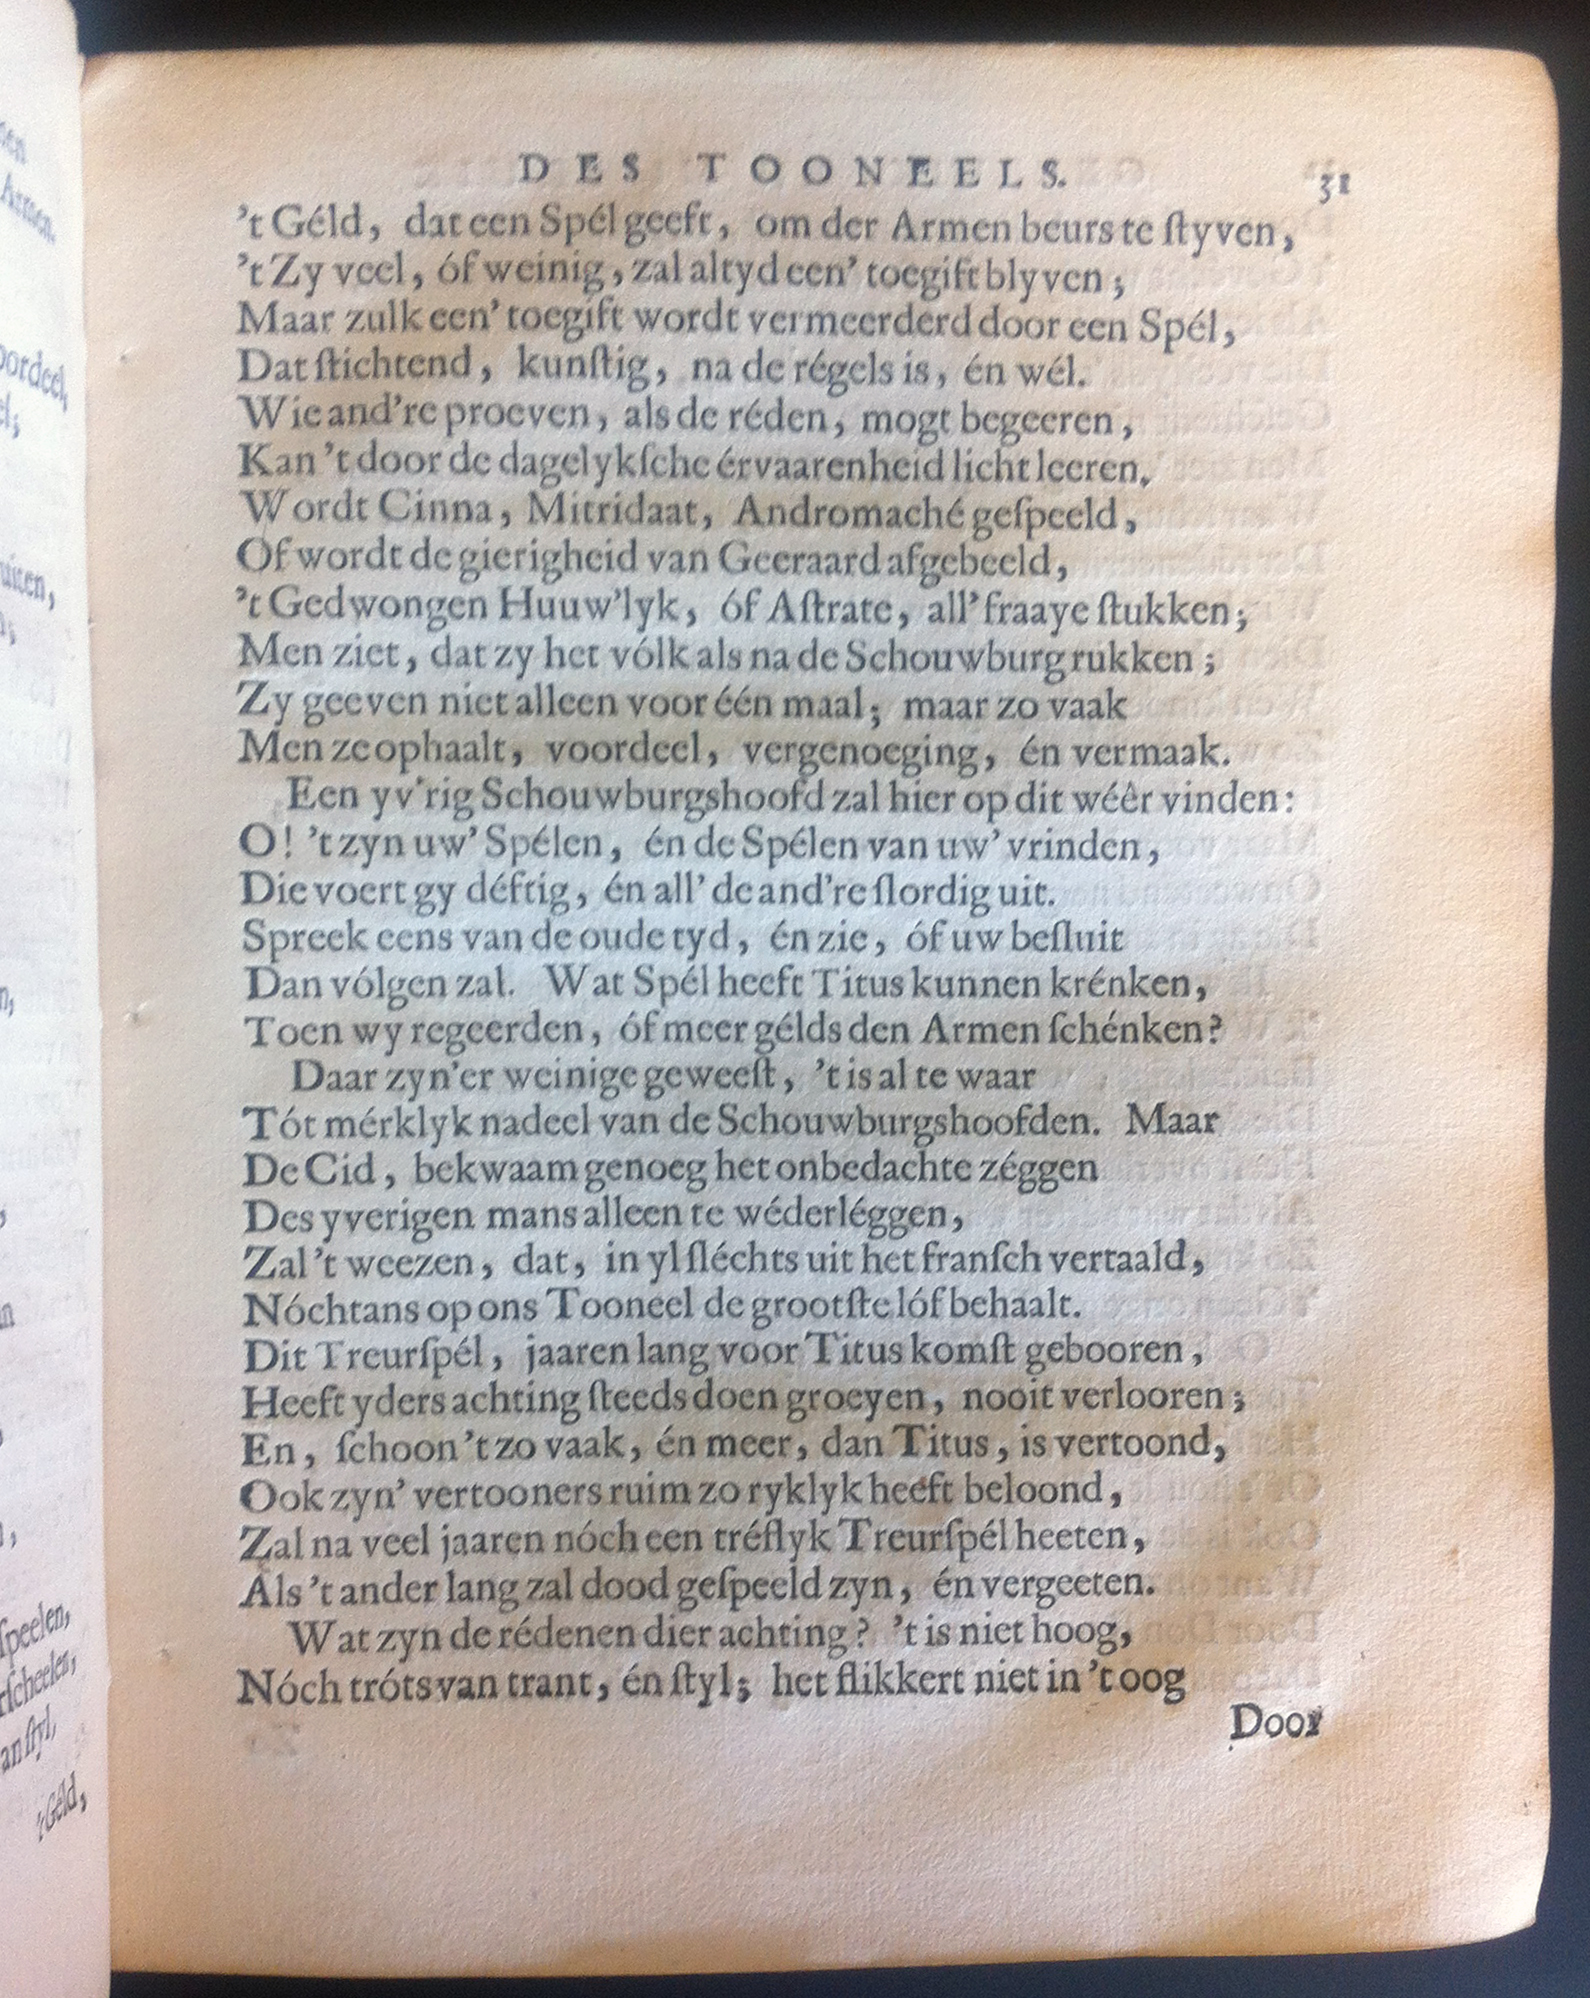 DES TOONEELS. 31
't Géld, dat een Spél geeft, om der Armen beurs te ſtyven,
't Zy veel, óf weinig, zal altyd een' toegift blyven;
Maar zulk een' toegift wordt vermeerderd door een Spél,
Dat ſtichtend, kunſtig, na de régels is, én wél.
Wie and're proeven, als de réden, mogt begeeren,
Kan 't door de dagelykſche érvaarenheid licht leeren,
Wordt Cinna, Mitridaat, Andromaché geſpeeld,
Of wordt de gierigheid van Geeraard afgebeeld,
't Gedwongen Huuw'lyk, óf Aſtrate, all' fraaye ſtukken;
Men ziet, dat zy het vólk als na de Schouwburg rukken;
Zy geeven niet alleen voor één maal; maar zo vaak
Men ze ophaalt, voordeel, vergenoeging, én vermaak.
Een yv'rig Schouwburgshoofd zal hier op dit wéêr vinden:
O! 't zyn uw' Spélen, én de Spélen van uw' vrinden,
Die voert gy déftig, én all' de and're ſlordig uit.
Spreek eens van de oude tyd, én zie, óf uw beſluit
Dan vólgen zal. Wat Spél heeft Titus kunnen krénken,
Toen wy regeerden, óf meer gélds den Armen ſchénken?
Daar zyn'er weinige geweeſt, 't is al te waar
Tót mérklyk nadeel van de Schouwburgshoofden. Maar
De Cid, bekwaam genoeg het onbedachte zéggen
Des yverigen mans alleen te wéderléggen,
Zal 't weezen, dat, in yl ſléchts uit het franſch vertaald,
Nóchtans op ons Tooneel de grootſte lóf behaalt.
Dit Treurſpél, jaaren lang voor Titus komſt gebooren,
Heeft yders achting ſteeds doen groeyen, nooit verlooren;
En, ſchoon 't zo vaak, én meer, dan Titus, is vertoond,
Ook zyn' vertooners ruim zo ryklyk heeft beloond,
Zal na veel jaaren nóch een tréflyk Treurſpél heeten,
Als 't ander lang zal dood geſpeeld zyn, én vergeeten.
Wat zyn de rédenen dier achting? 't is niet hoog,
Nóch tróts van trant, én ſtyl; het flikkert niet in 't oog
Door